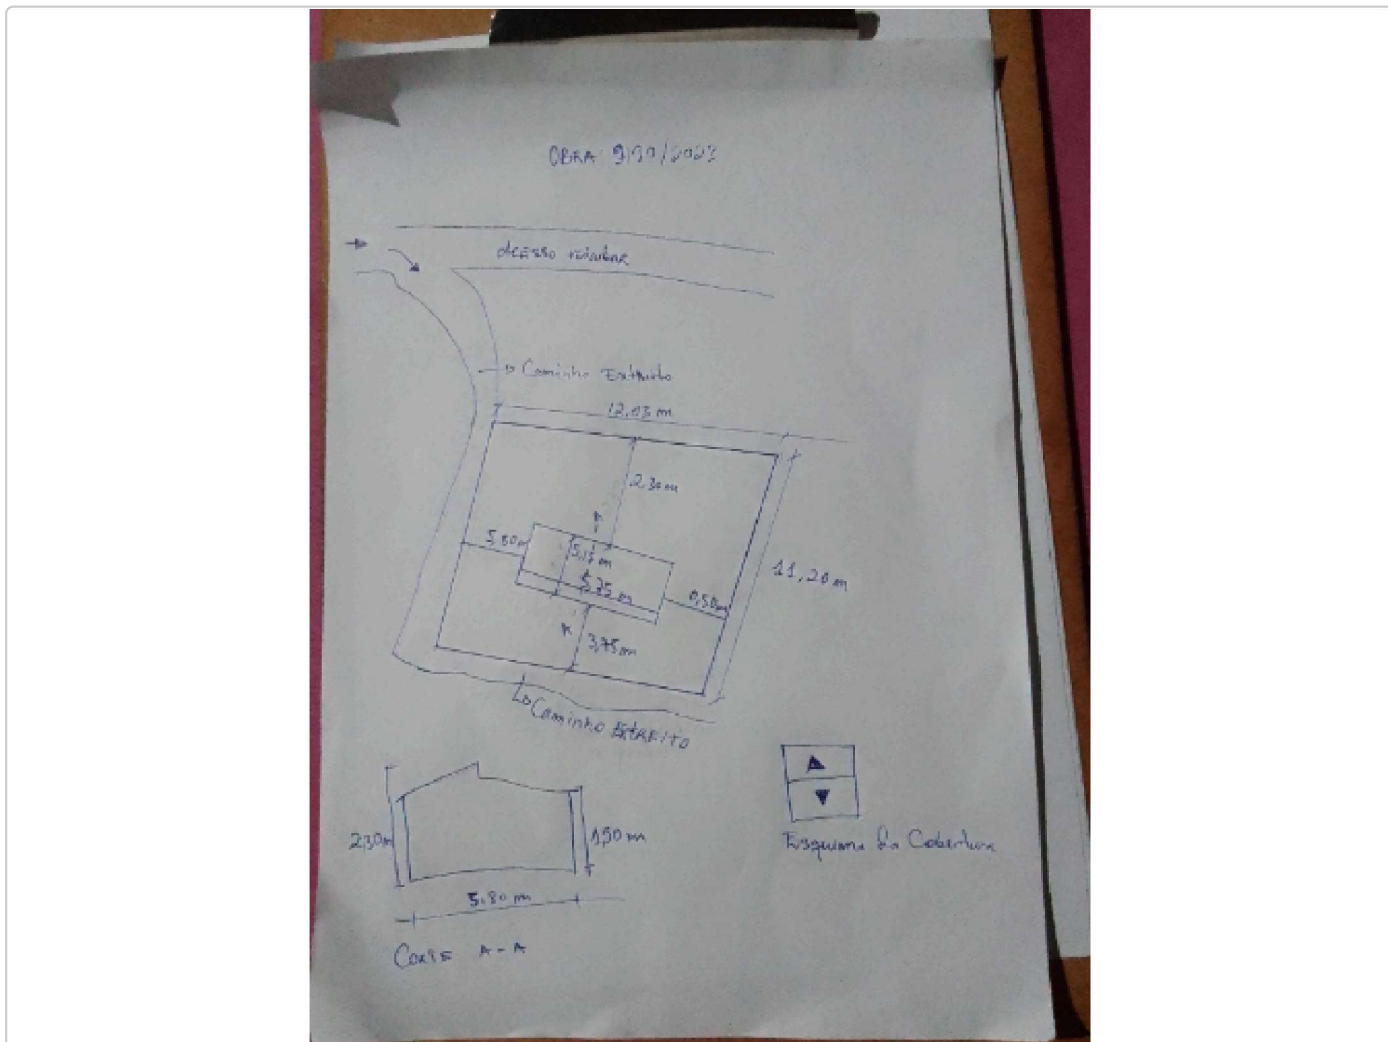 OBRA 9/10/2023
acesso
Caminho
12,03 m
2,30 m
5,80 m
5,15 m
5,75 m
0,50 m
11,20 m
A
A
3,75 m
Caminho EStREITO
2,30 m
1,90 m
5,80 m
CORTE A-A
Esquema da Cobertura